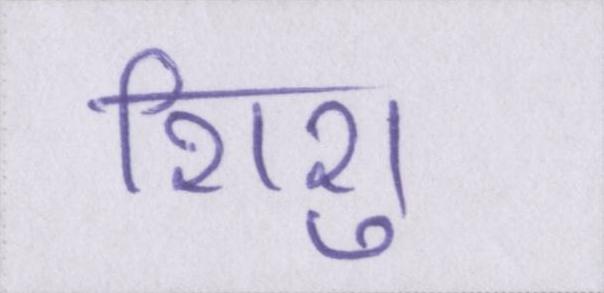 शिशु